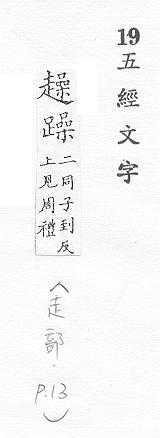 19五經文字
趮躁
二同子到反
上見周禮
(走部.P.13)